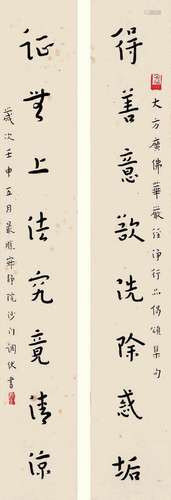 大方廣佛華嚴經淨行品偈頌集句
得善意欲洗除惑垢
証無上法究竟清涼
歲次壬申五月最勝寂靜院沙门調伏書